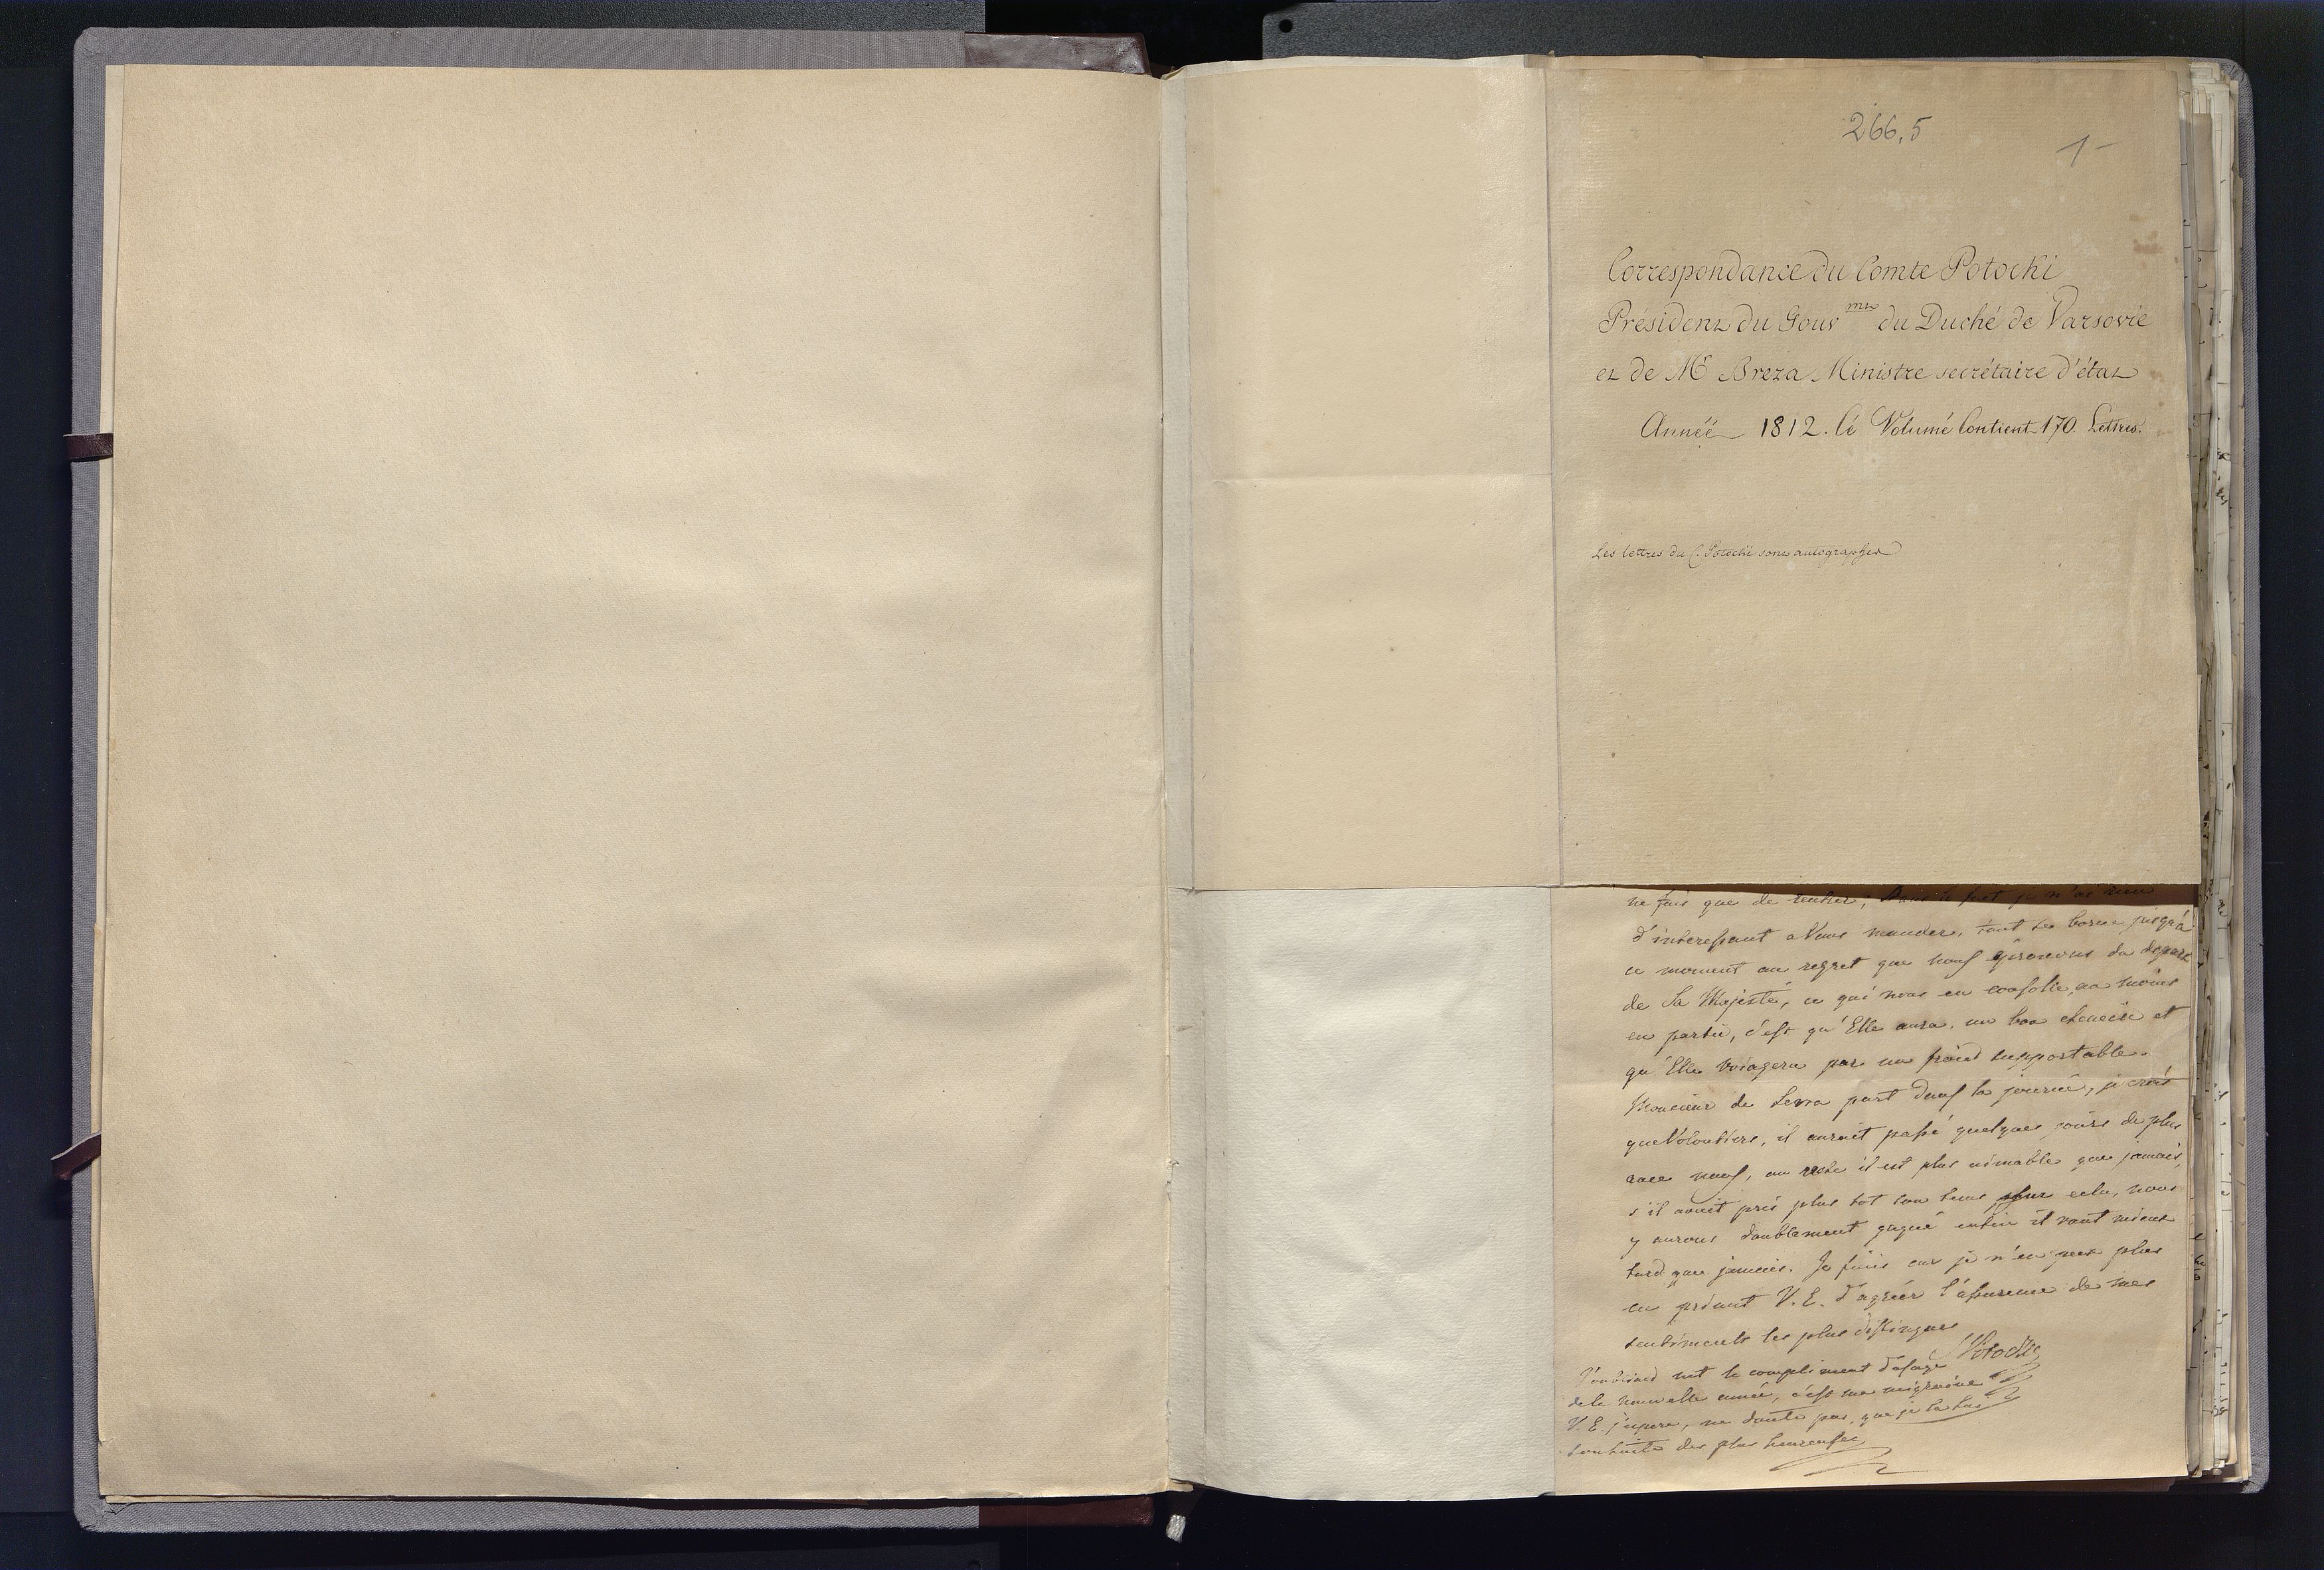 266,5
1-
Correspondance du Comte Potocki
Président du Gouv mt du Duché de Varsovie
et de Mr Breza Ministre secrétaire d'état
Année 1812. Cé Volumé Contient 170. Lettres.
Les lettres du C. Potocki sont autographes
ne fais que de rentrer,
d'interessant a Vous mander, tout se borne jusqu'à
ce moment au regret que nous eprouvons du depart
de Sa Majesté, ce qui nous en console, au moins
en partie, c'est qu'Elle aura un bon chemin et
qu'Elle voiagera par un froid supportable.
Monsieur de Serra part dans la journée, je crois
que Volontiers, il auroit passé quelques jours de plus
avec nous, au reste il est plus aimable que jamais,
s'il avoit pris plus tot son tems pour cela, nous
y aurons doublement gagné enfin il vaut mieux
tard que jamais. Je finis car je n'en peux plus
en priant V. E. d'agréer l'assurance de mes
sentiments les plus distingués
SPotocki
J'oubliois le compliment d'usage
de la nouvelle année, c'est ma migraine
V. E. j'espere, ne doute pas, que je la lui
souhaite des plus heureuses